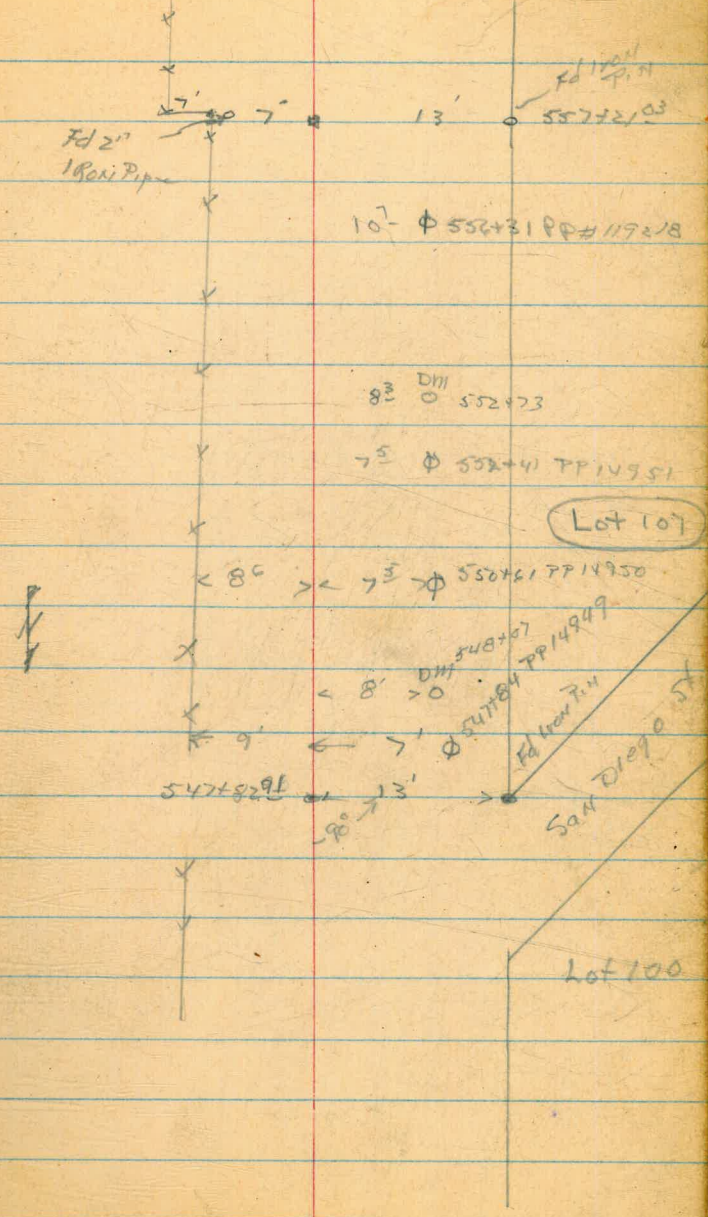 Fd Iron Pin
7' 7' 13' 557+21 03
Fd 2"
Iron Pipe
10 7 ϕ 556+31 PP#119218
DM
8 3 O 552+73
7 5 ϕ 552+41 PP 14951
Lot 107
< 8 6 > < 7 5 > ϕ 550+61 PP 14950
DM 548+07
< 8' > O
9' 7' ϕ 547+84 PP 14949
Fd Iron Pin
547+82 91 13'
90°
San Diego St
Lot 100